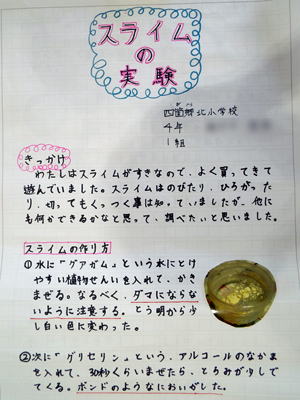 スライム
の
実験
四箇郷北小学校
4年
1組
きっかけ
わたしはスライムがすきなので、よく買ってきて
遊んでいました。スライムはのびたり、ひろがった
り、切ってもくっつく事は知っていましたが、他に
も何かできるかなと思って、調べたいと思いました。
スライムの作り方
①水に「グアガム」という水にとけ
やすい植物せんいを入れて、かき
まぜる。なるべく、ダマにならな
いように注意する。とう明から少
し白い色に変わった。
②次に「グリセリン」という、アルコールのなかま
を入れて、30秒くらいまぜたら、とろみが少しで
てくる。ボンドのようなにおいがした。